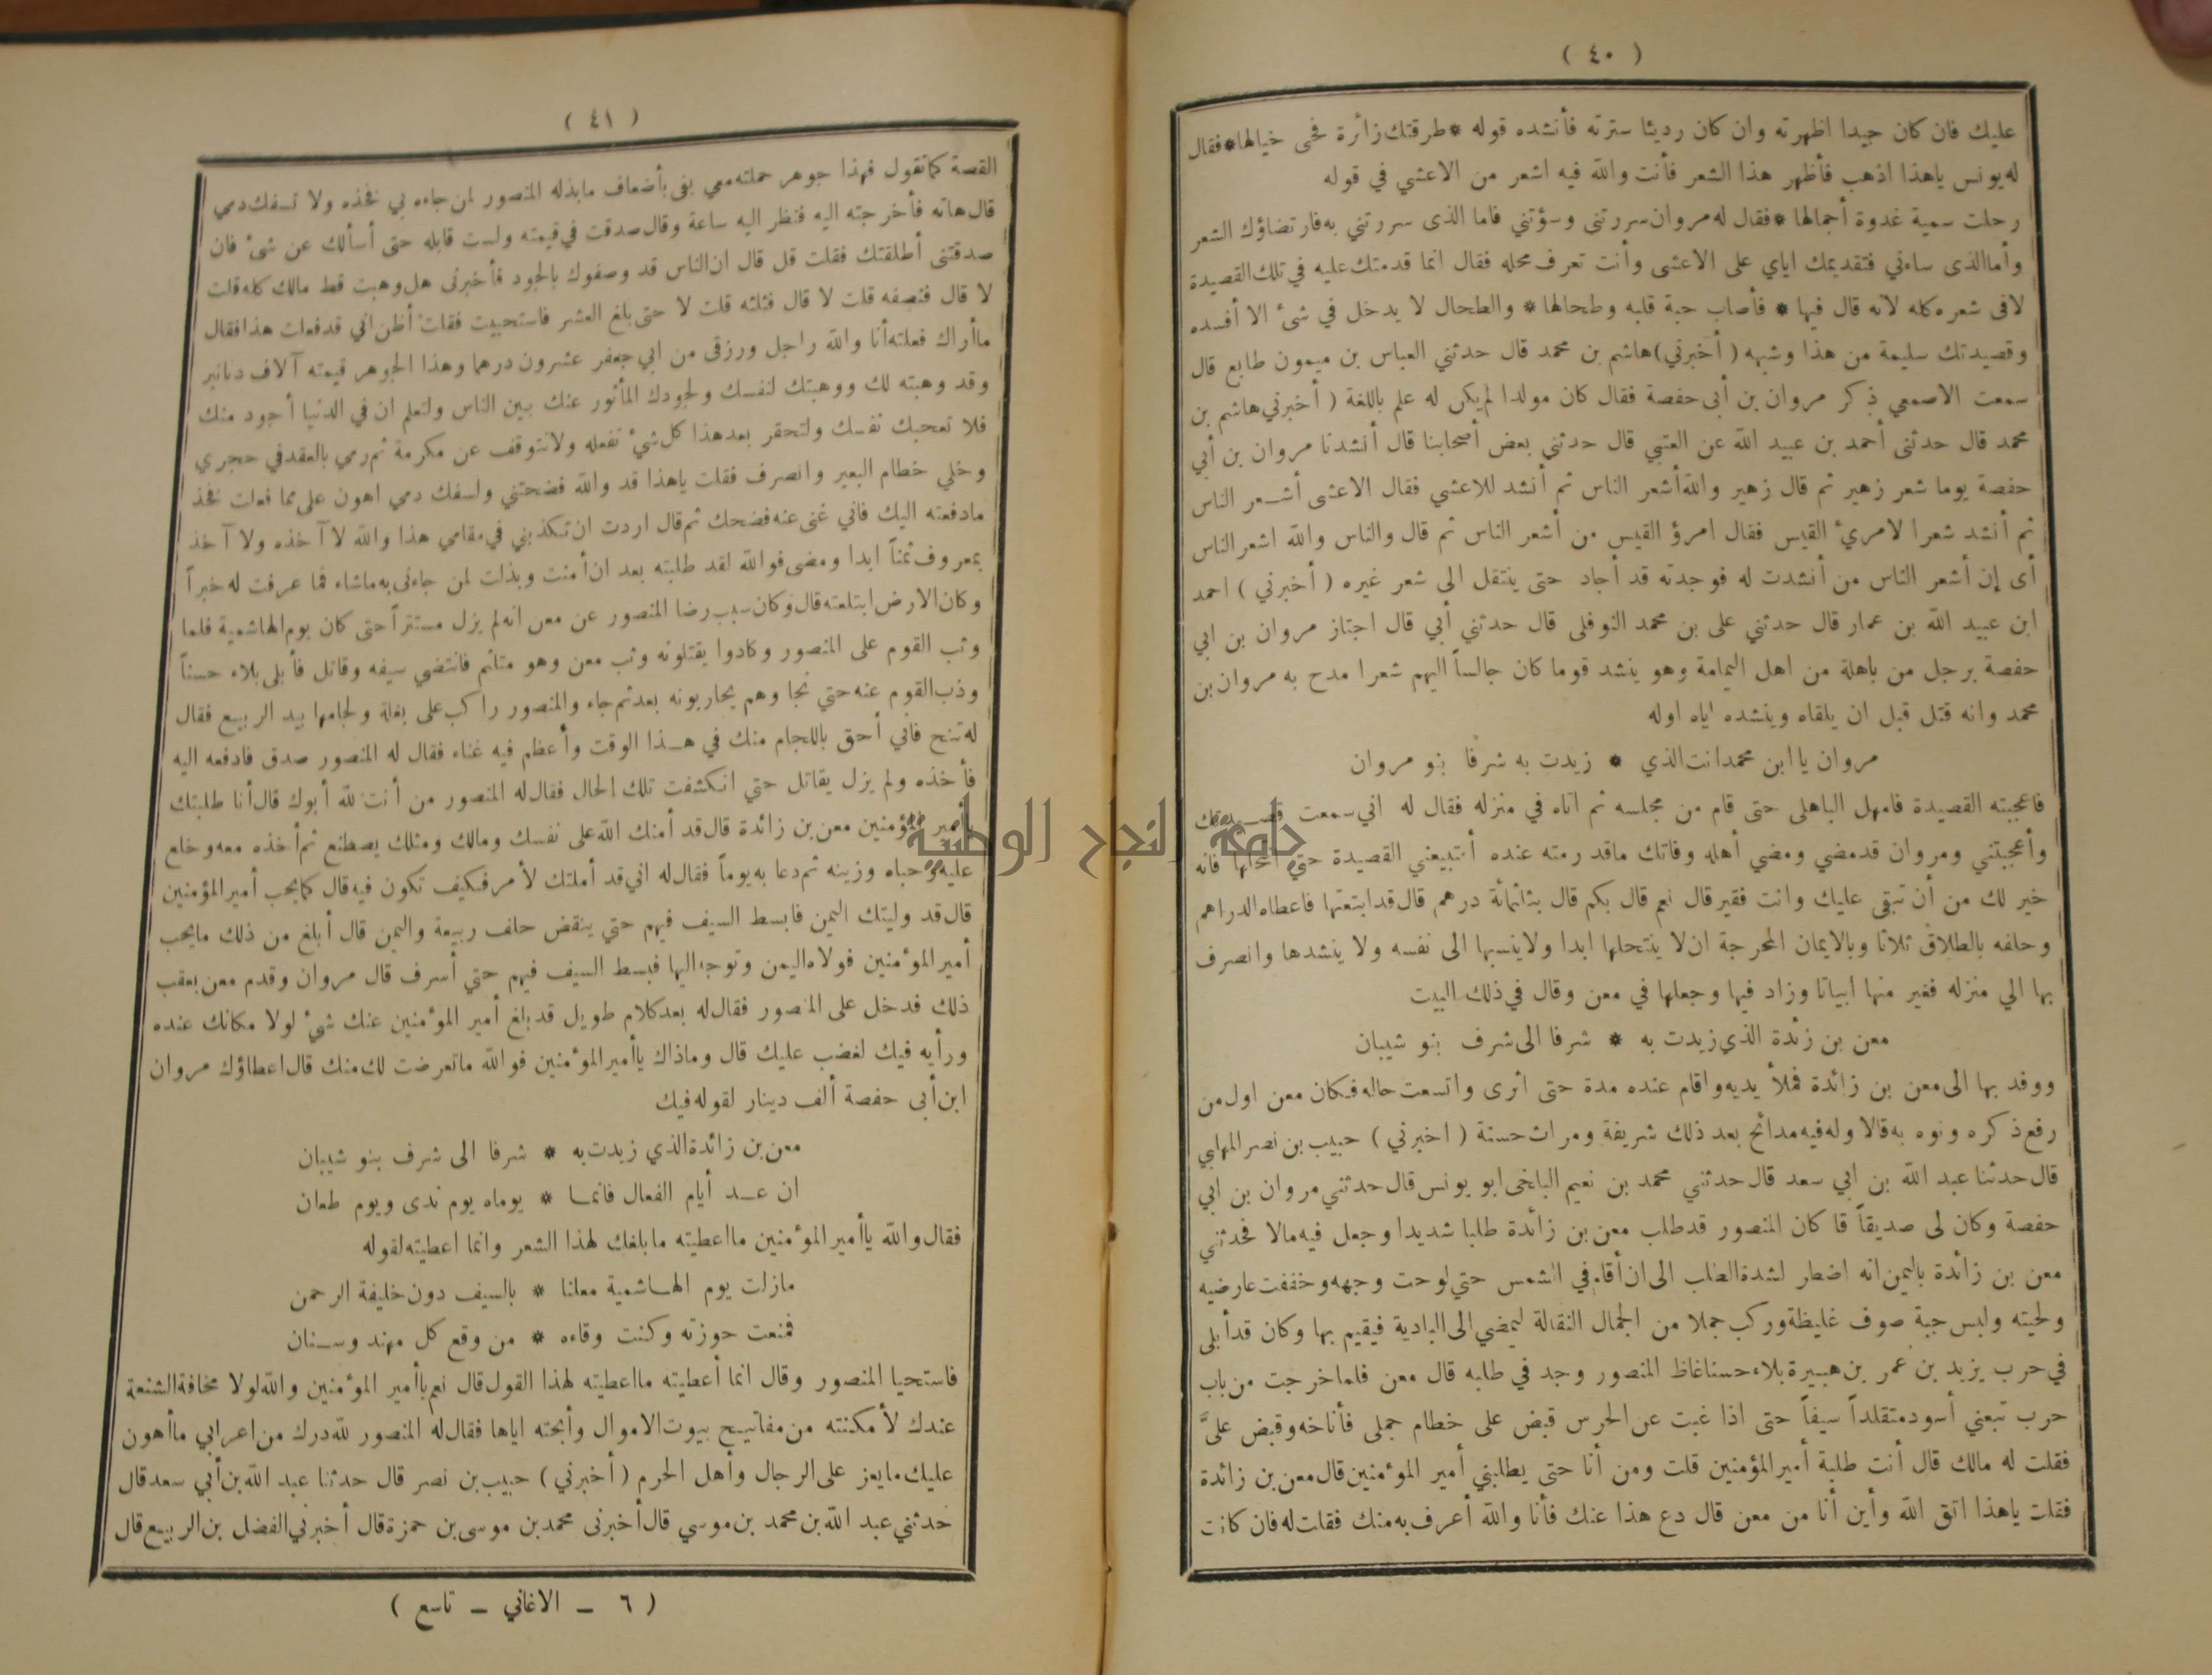 ( ٤٠ )
عليك فان كان جيدا اظهرته وان كان رديئا سترته فأنشده قوله * طرقتك زائرة فحى خيالها * فقال
له يونس ياهذا اذهب فأظهر هذا الشعر فأنت والله فيه اشعر من الاعشي في قوله
رحلت سمية غدوة أجمالها * فقال له مروان سررتنى وسؤتني فاما الذى سررتني به فارتضاؤك الشعر
وأما الذى ساءني فتقديمك اياي على الاعشى وأنت تعرف محله فقال انما قدمتك عليه في تلك القصيدة
لافى شعره كله لانه قال فيها * فأصاب حبة قلبه وطحالها * والطحال لا يدخل في شئ الا أفسده
وقصيدتك سليمة من هذا وشبهه ( أخبرني ) هاشم بن محمد قال حدثني العباس بن ميمون طابع قال
سمعت الاصمعي ذكر مروان بن أبى حفصة فقال كان مولدا لم يكن له علم باللغة ( أخبرني هاشم بن
محمد قال حدثنى أحمد بن عبيد الله عن العتبي قال حدثني بعض أصحابنا قال أنشدنا مروان بن أبي
حفصة يوما شعر زهير ثم قال زهير والله أشعر الناس ثم أنشد للاعشي فقال الاعشى أشعر الناس
ثم أنشد شعرا لامرئ القيس فقال امرؤ القيس من أشعر الناس ثم قال والناس والله اشعر الناس
أى إن أشعر الناس من أنشدت له فوجدته قد أجاد حتى ينتقل الى شعر غيره ( أخبرني ) احمد
ابن عبيد الله بن عمار قال حدثني على بن محمد النوفلى قال حدثني أبي قال اجتاز مروان بن ابي
حفصة برجل من باهلة من اهل اليمامة وهو ينشد قوما كان جالساً اليهم شعرا مدح به مروان بن
محمد وانه قتل قبل ان يلقاه وينشده اياه اوله
مروان يا ابن محمد انت الذي * زيدت به شرفا بنو مروان
فاعجبته القصيدة فامهل الباهلى حتى قام من مجلسه ثم اتاه في منزله فقال له اني سمعت قصيدتك
وأعجبتني ومروان قد مضي ومضي أهله وفاتك ماقدرمته عنده أتبيعني القصيدة حتي انتحلها فانه
خير لك من أن تبقى عليك وانت فقير قال نعم قال بكم قال بثلثمائة درهم قال قد ابتعتها فاعطاه الدراهم
وحلفه بالطلاق ثلاثا وبالايمان المحرجة ان لا ينتحلها ابدا ولا ينسبها الى نفسه ولا ينشدها وانصرف
بها الي منزله فغير منها ابياتا وزاد فيها وجعلها في معن وقال في ذلك البيت
معن بن زئدة الذي زيدت به * شرفا الى شرف بنو شيبان
ووفد بها الى معن بن زائدة فملأ يديه واقام عنده مدة حتى اثرى واتسعت حاله فكان معن اول من
رفع ذكره ونوه به قالا وله فيه مدائح بعد ذلك شريفة ومراث حسنة ( اخبرني ) حبيب بن نصر المهلبي
قال حدثنا عبد الله بن ابي سعد قال حدثني محمد بن نعيم البلخى ابو يونس قال حدثني مروان بن ابي
حفصة وكان لى صديقاً قا كان المنصور قد طلب معن بن زائدة طلبا شديدا وجعل فيه مالا فحدثني
معن بن زائدة باليمن انه اضطر لشدة الطلب الى ان أقام في الشمس حتي لوحت وجهه وخففت عارضيه
ولحيته ولبس جبة صوف غليظة وركب جملا من الجمال النقالة ليمضي الى البادية فيقيم بها وكان قد أبلى
في حرب يزيد بن عمر بن هبيرة بلاء حسنا غاظ المنصور وجد في طلبه قال معن فلما خرجت من باب
حرب تبعني أسود متقلداً سيفاً حتى اذا غبت عن الحرس قبض على خطام جملى فأناخه وقبض علىَّ
فقلت له مالك قال أنت طلبة أمير المؤمنين قلت ومن أنا حتى يطلبني أمير المؤمنين قال معن بن زائدة
فقلت ياهذا اتق الله وأين أنا من معن قال دع هذا عنك فأنا والله أعرف به منك فقلت له فان كانت
( ٤١ )
القصة كما تقول فهذا جوهر حملته معي بفى بأضعاف مابذله المنصور لمن جاءه بي فخذه ولا تسفك دمي
قال هاته فأخرجته اليه فنظر اليه ساعة وقال صدقت في قيمته ولست قابله حتى أسألك عن شئ فان
صدقتنى أطلقتك فقلت قل قال ان الناس قد وصفوك بالجود فأخبرنى هل وهبت قط مالك كله قلت
لا قال فنصفه قلت لا قال فثلثه قلت لا حتى بلغ العشر فاستحييت فقلت أظن اني قد فعلت هذا فقال
ما أراك فعلته أنا والله راجل ورزقى من ابي جعفر عشرون درهما وهذا الجوهر قيمته آلاف دنانير
وقد وهبته لك ووهبتك لنفسك ولجودك المأثور عنك بين الناس ولتعلم ان في الدنيا أجود منك
فلا تعجبك نفسك ولتحقر بعد هذا كل شئ تفعله ولا تتوقف عن مكرمة ثم رمي بالعقد في حجري
وخلي خطام البعير وانصرف فقلت ياهذا قد والله فضحتني ولسفك دمي اهون على مما فعلت فخذ
مادفعته اليك فاني غنى عنه فضحك ثم قال اردت ان تكذبني في مقامي هذا والله لا آخذه ولا آخذ
بمعروف ثمناً ابدا ومضى فوالله لقد طلبته بعد ان أمنت وبذلت لمن جاءنى به ماشاء فما عرفت له خبراً
وكان الارض ابتلعته قال وكان سبب رضا المنصور عن معن انه لم يزل مستتراً حتى كان يوم الهاشمية فلما
وثب القوم على المنصور وكادوا يقتلونه وثب معن وهو متلثم فانتضي سيفه وقاتل فأبلى بلاء حسناً
وذب القوم عنه حتي نجا وهم يحاربونه بعد ثم جاء والمنصور راكب على بغلة ولجامها بيد الربيع فقال
له تنح فاني أحق باللجام منك في هذا الوقت وأعظم فيه غناء فقال له المنصور صدق فادفعه اليه
فأخذه ولم يزل يقاتل حتي انكشفت تلك الحال فقال له المنصور من أنت لله أبوك قال أنا طلبتك
يا أمير المؤمنين معن بن زائدة قال قد أمنك الله على نفسك ومالك ومثلك يصطنع ثم أخذه معه وخلع
عليه وحباه وزينه ثم دعا به يوماً فقال له اني قد أملتك لأمر فكيف تكون فيه قال كما يحب أمير المؤمنين
قال قد وليتك اليمن فابسط السيف فيهم حتي ينقض حلف ربيعة واليمن قال أبلغ من ذلك مايحب
أمير المؤمنين فولاه اليمن وتوجه اليها فبسط السيف فيهم حتي أسرف قال مروان وقدم معن بعقب
ذلك فدخل على المنصور فقال له بعد كلام طويل قد بلغ أمير المؤمنين عنك شئ لولا مكانك عنده
ورأيه فيك لغضب عليك قال وماذاك يا أمير المؤمنين فوالله ماتعرضت لك منك قال اعطاؤك مروان
ابن أبى حفصة ألف دينار لقوله فيك
معن بن زائدة الذي زيدت به * شرفا الى شرف بنو شيبان
ان عد أيام الفعال فانما * يوماه يوم ندى ويوم طعان
فقال والله يا أمير المؤمنين ما اعطيته مابلغك لهذا الشعر وانما اعطيته لقوله
مازلت يوم الهاشمية معلنا * بالسيف دون خليفة الرحمن
فمنعت حوزته وكنت وقاءه * من وقع كل مهند وسنان
فاستحيا المنصور وقال انما أعطيته ما اعطيته لهذا القول قال نعم يا أمير المؤمنين والله لولا مخافة الشنعة
عندك لأمكنته من مفاتيح بيوت الاموال وأبحته اياها فقال له المنصور لله درك من اعرابي ما أهون
عليك مايعز على الرجال وأهل الحرم ( أخبرني ) حبيب بن نصر قال حدثنا عبد الله بن أبي سعد قال
حدثني عبد الله بن محمد بن موسي قال أخبرنى محمد بن موسى بن حمزة قال أخبرني الفضل بن الربيع قال
( ٦ – الاغاني – تاسع )
جامعة النجاح الوطنية